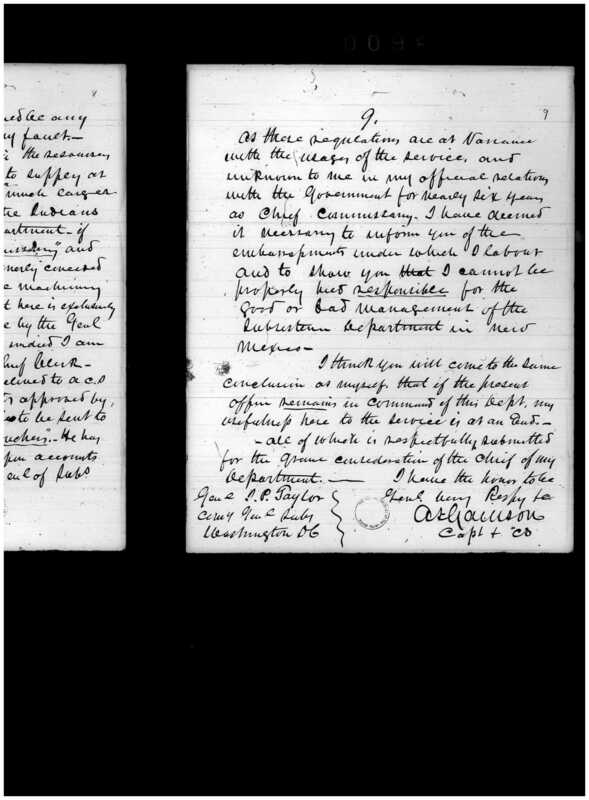 009
8
ed be any
y fault.—
the resources
to supply at
"much larger
the Indians
artment - if
and
merly conceived
e machinery
t here is exclusively
e by the Genl
indeed I am
Chief Clerk —
to a C.S
approved by,
to be sent to
vouchers". - He has
upon accounts
eral of Subs
9.
9
as these regulations are at Variance
with the usages of the service, and
unknown to me in my official relations
with the Government for nearly six years
as Chief Commissary. I have deemed
it necessary to inform you of the
embarrassments under which I labour
and to show you that I cannot be
properly held responsible for the
good or bad management of the
Subsistence Department in New
Mexico —
I think you will come to the same
conclusion as myself, that if the present
officer remains in command of this Dept. my
usefulness here to the service is at an End. —
- all of which is respectfully submitted
for the grave consideration of the Chief of my
Department. — I have the honor to be
Genl. very Respy &c
Genl J. P. Taylor
Comy Genl Subs
Washington DC
A F Garrison
Capt & CS